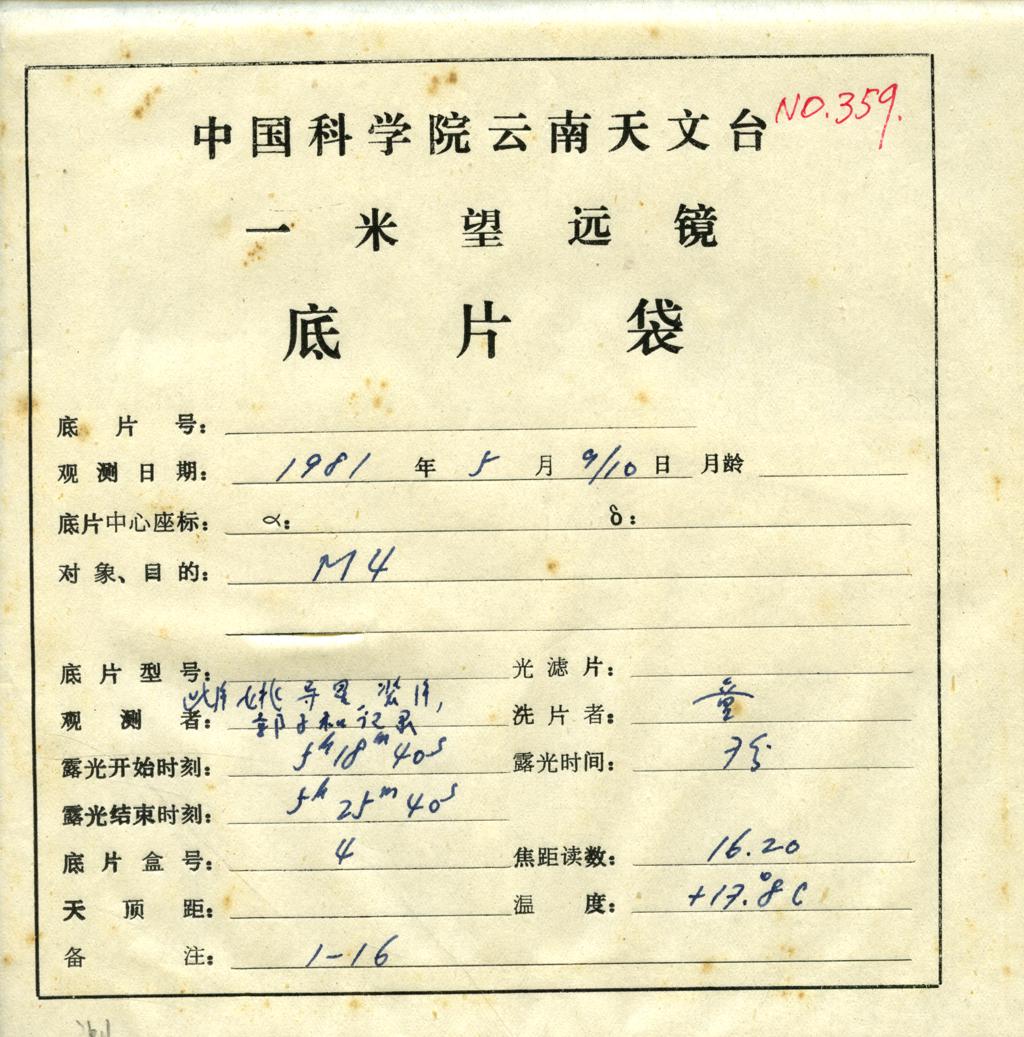 NO.359.
中国科学院云南天文台
一米望远镜
底片袋
底片号：
观测日期： 1981 年 5 月 9/10 日 月龄
底片中心座标： α： δ：
对象、目的： M4
底片型号： 光滤片：
观测者： 洗片者： 童
露光开始时刻： 5h18m40s 露光时间： 7分
露光结束时刻： 5h25m40s
底片盒号： 4 焦距读数： 16.20
天顶距： 温度： +17.°8C
备注： 1-16